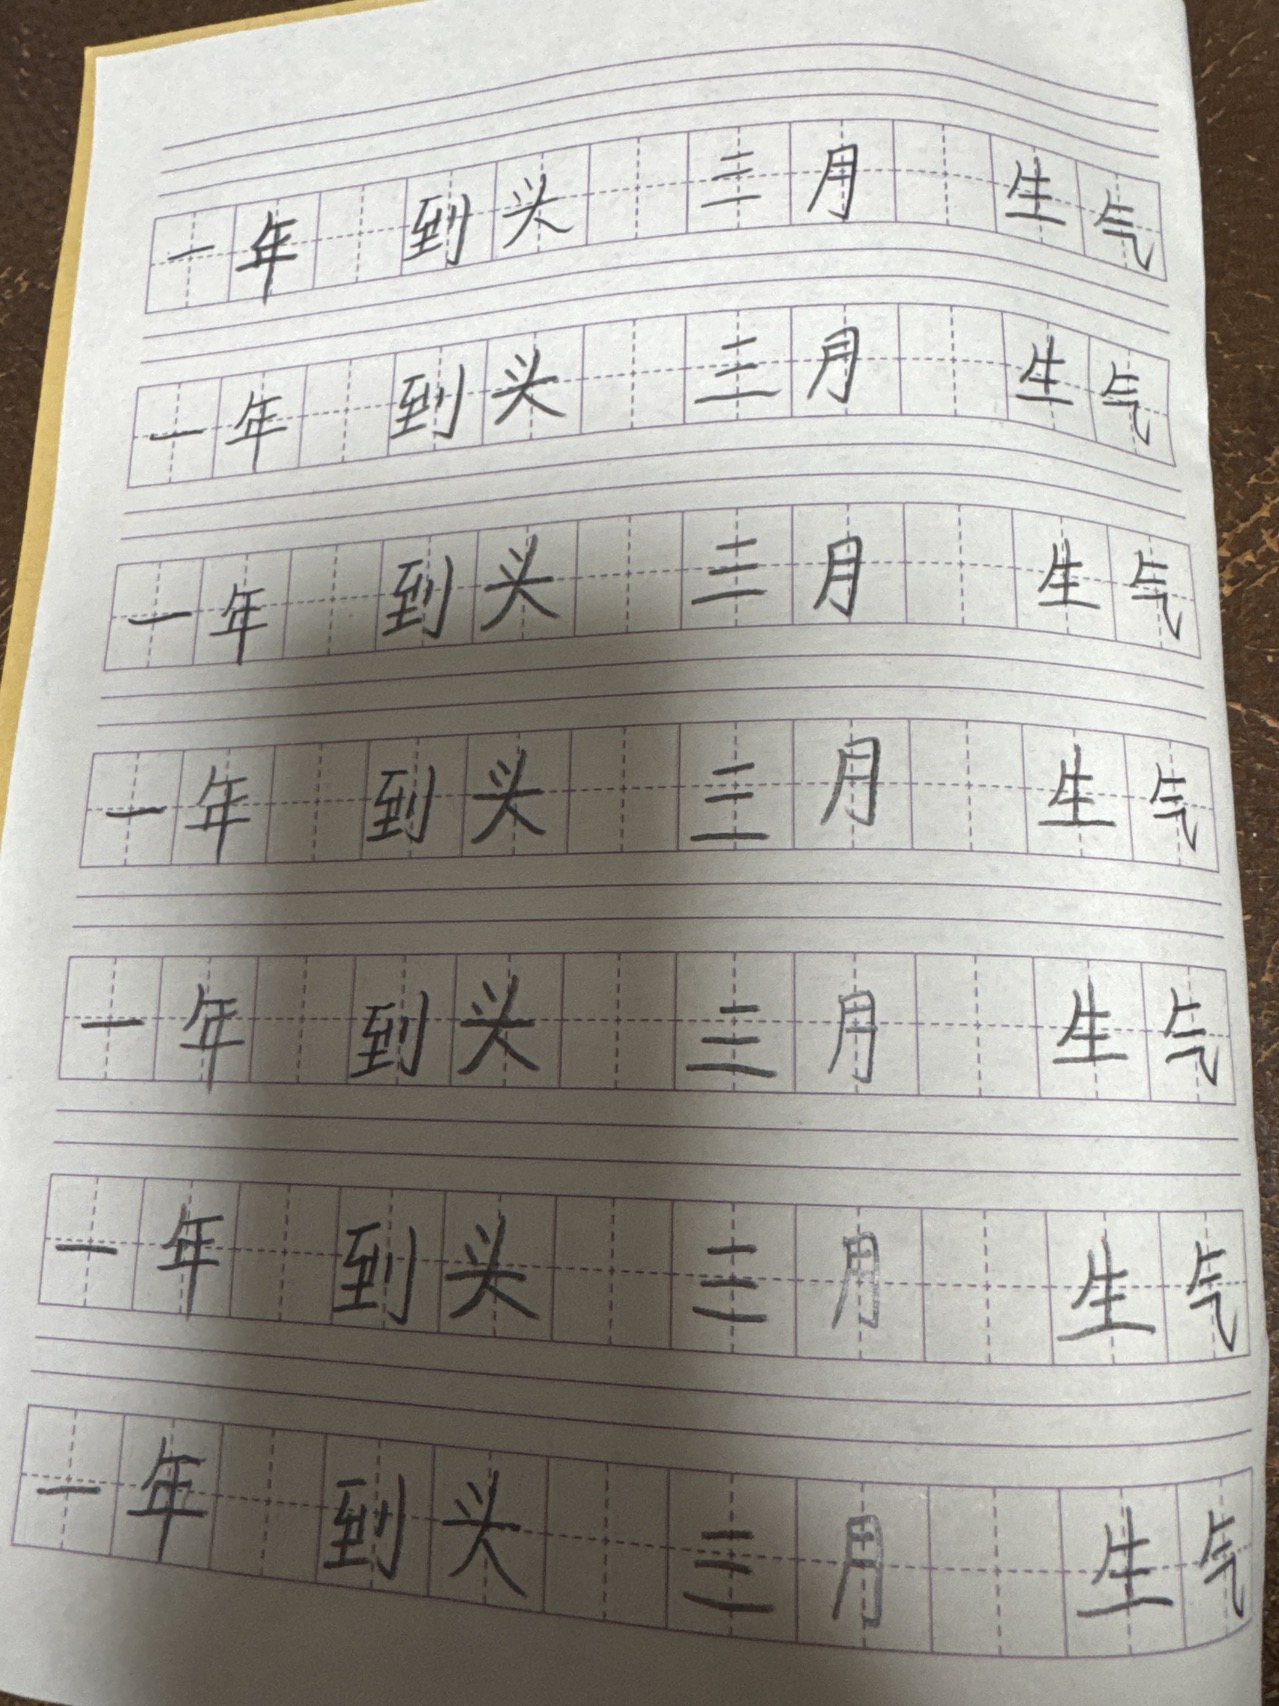 一年 到头 三月 生气
一年 到头 三月 生气
一年 到头 三月 生气
一年 到头 三月 生气
一年 到头 三月 生气
一年 到头 三月 生气
一年 到头 三月 生气